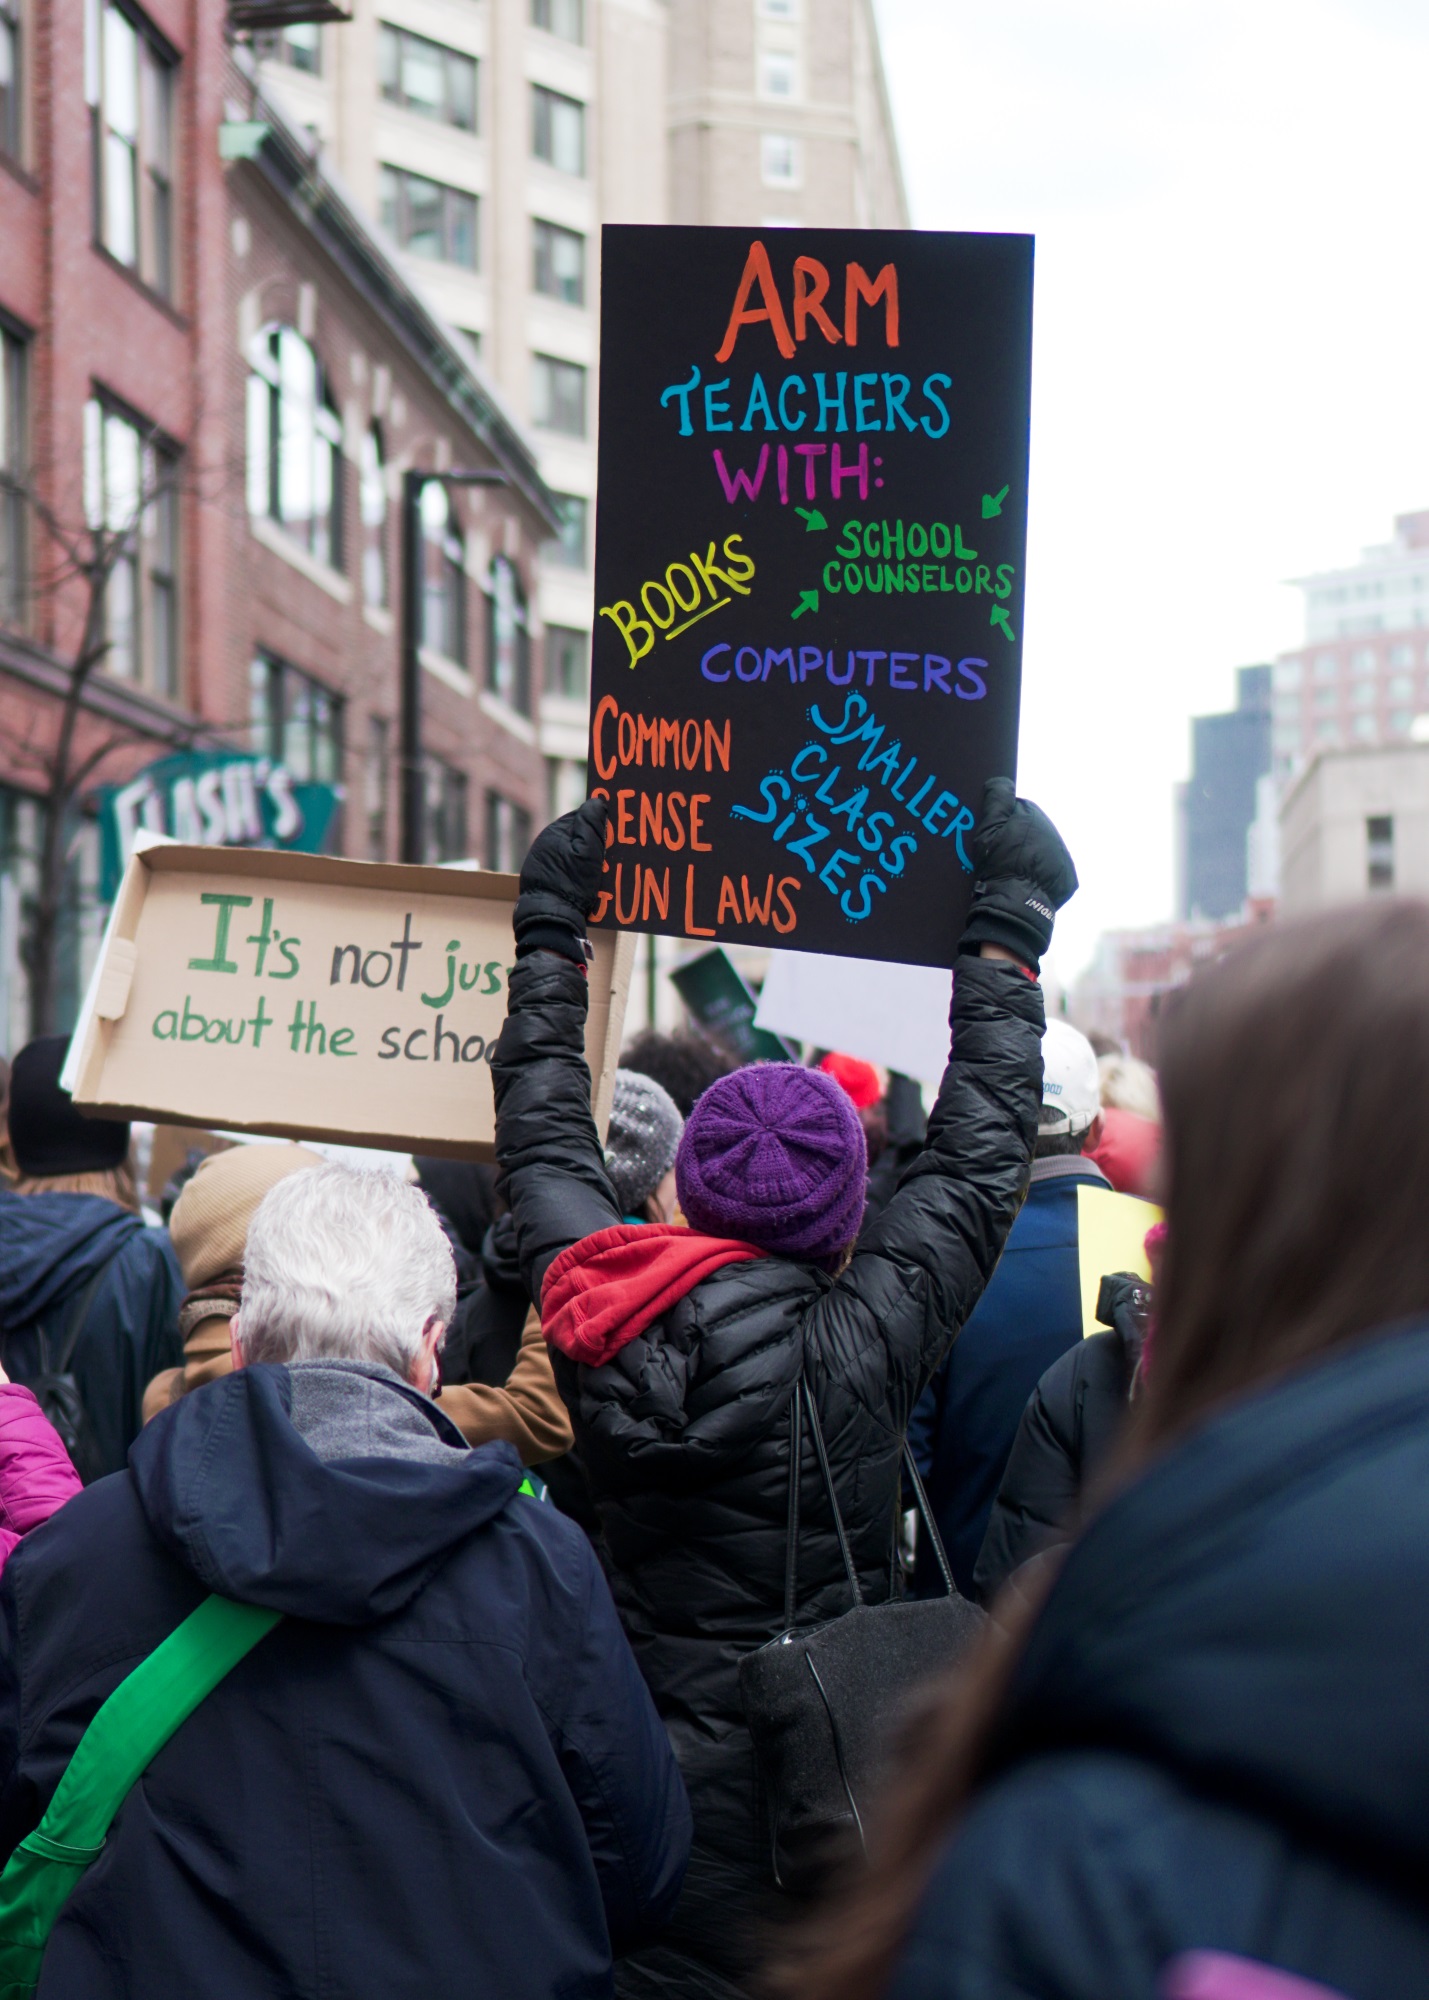 ARM
TEACHERS
WITH:
BOOKS
SCHOOL
COUNSELORS
COMPUTERS
COMMON
SENSE
GUN LAWS
SMALLER
CLASS
SIZES
It's not
about the
FLASH'S